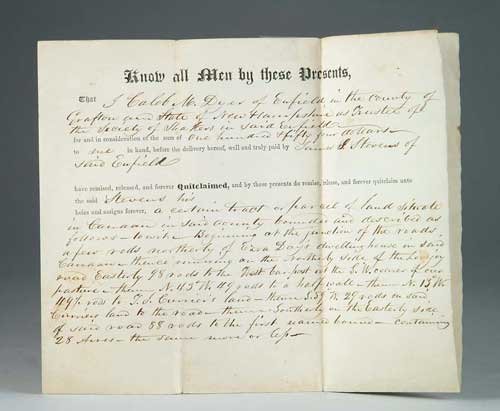 Know all Men by these Presents,
That I Caleb M. Dyer of Enfield in the County of
Grafton and State of New Hampshire as Trustee of
the Society of Shakers in said Enfield
for and in consideration of the sum of One hundred & fifty four dollars
to me in hand, before the delivery hereof, well and truly paid by James Stevens of
said Enfield
have remised, released, and forever Quitclaimed, and by these presents do remise, release, and forever quitclaim unto
the said Stevens his
heirs and assigns forever, a certain tract or parcel of land situate
in Canaan in said County bounded and described as
follows - to wit - Beginning at the junction of the roads
a few rods northerly of Ezra Days dwelling house in said
Canaan - thence running on the Northerly side of the
road Easterly 98 rods to the Post Ear post at the S. W. corner of our
pasture - then N. 43° W. 49 rods to a half wall - then N. 15° W.
49½ rods to Currier's land - then S. 59° W. 29 rods on said
Curriers land to the road - then Southerly on the Easterly side
of said road 88 rods to the first named bound - containing
28 Acres - the same more or less -